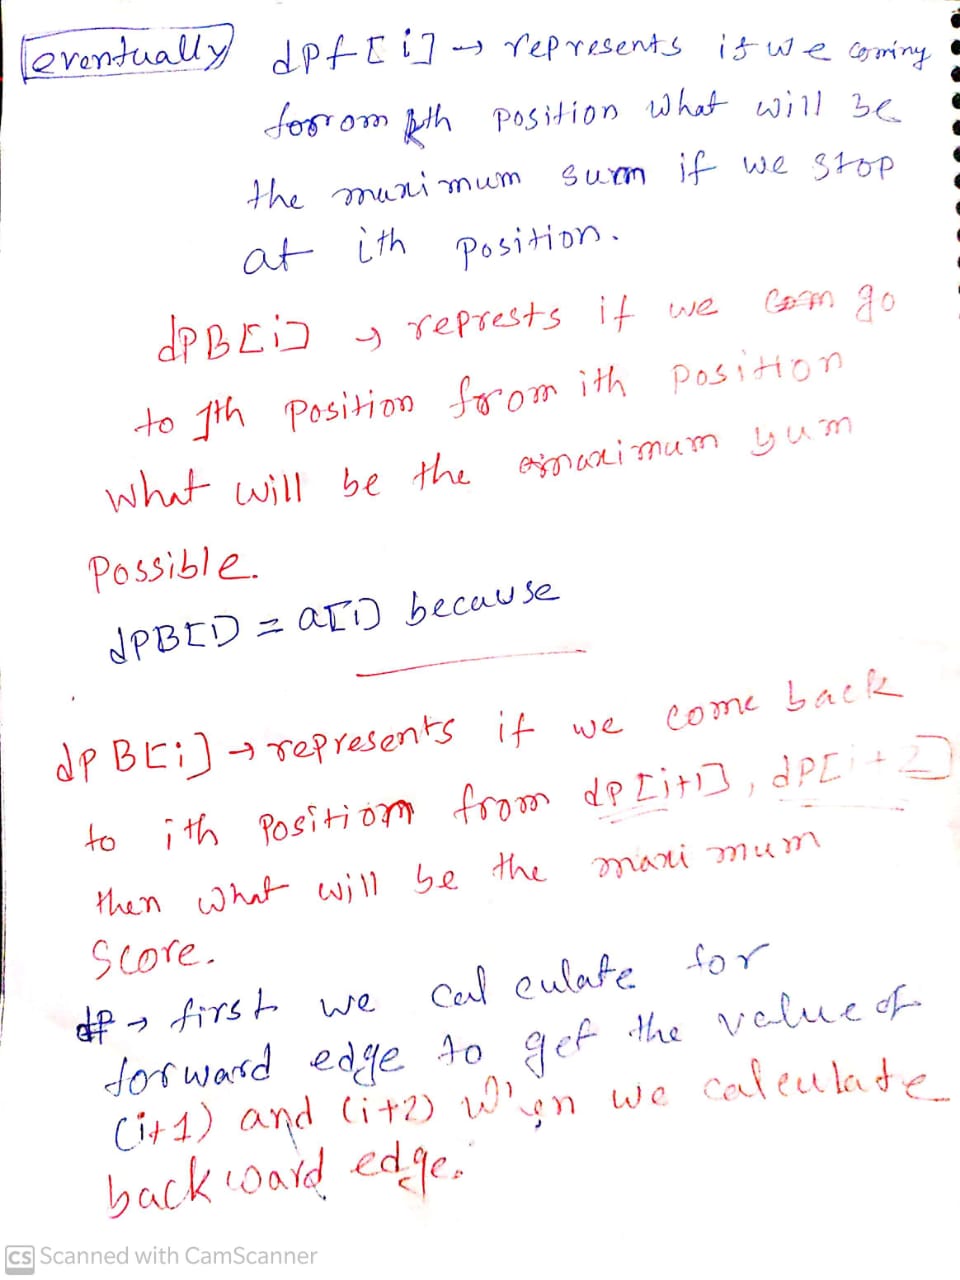 eventually dpf[i] → represents if we coming
from kth position what will be
the maximum sum if we stop
at ith position.
dPB[i] → represts if we can go
to 1th position from ith position
what will be the maximum sum
Possible.
dPB[1] = a[1] because
dp B[i] → represents if we come back
to ith Position from dp[i+1], dp[i+2]
then what will be the maximum
Score.
→ first we calculate for
forward edge to get the value of
(i+1) and (i+2) when we calculate
backward edge.
CS Scanned with CamScanner